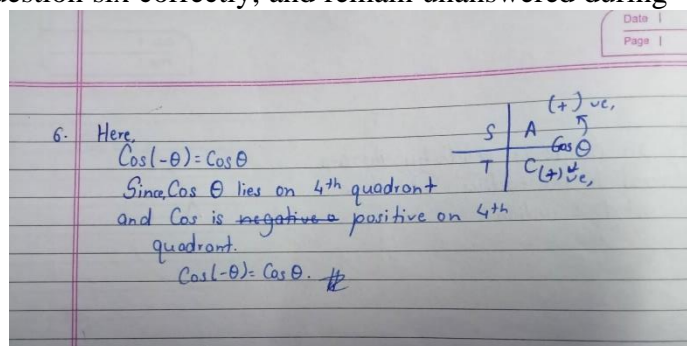 estion six correctly, and remain unanswered during
Date
Page
6. Here,
Cos(-θ) = Cosθ
Since, Cos θ lies on 4th quadront
and Cos is negative positive on 4th
quadront.
Cos(-θ) = Cosθ.
S A (+)ve,
Cosθ
T C(+)ve,